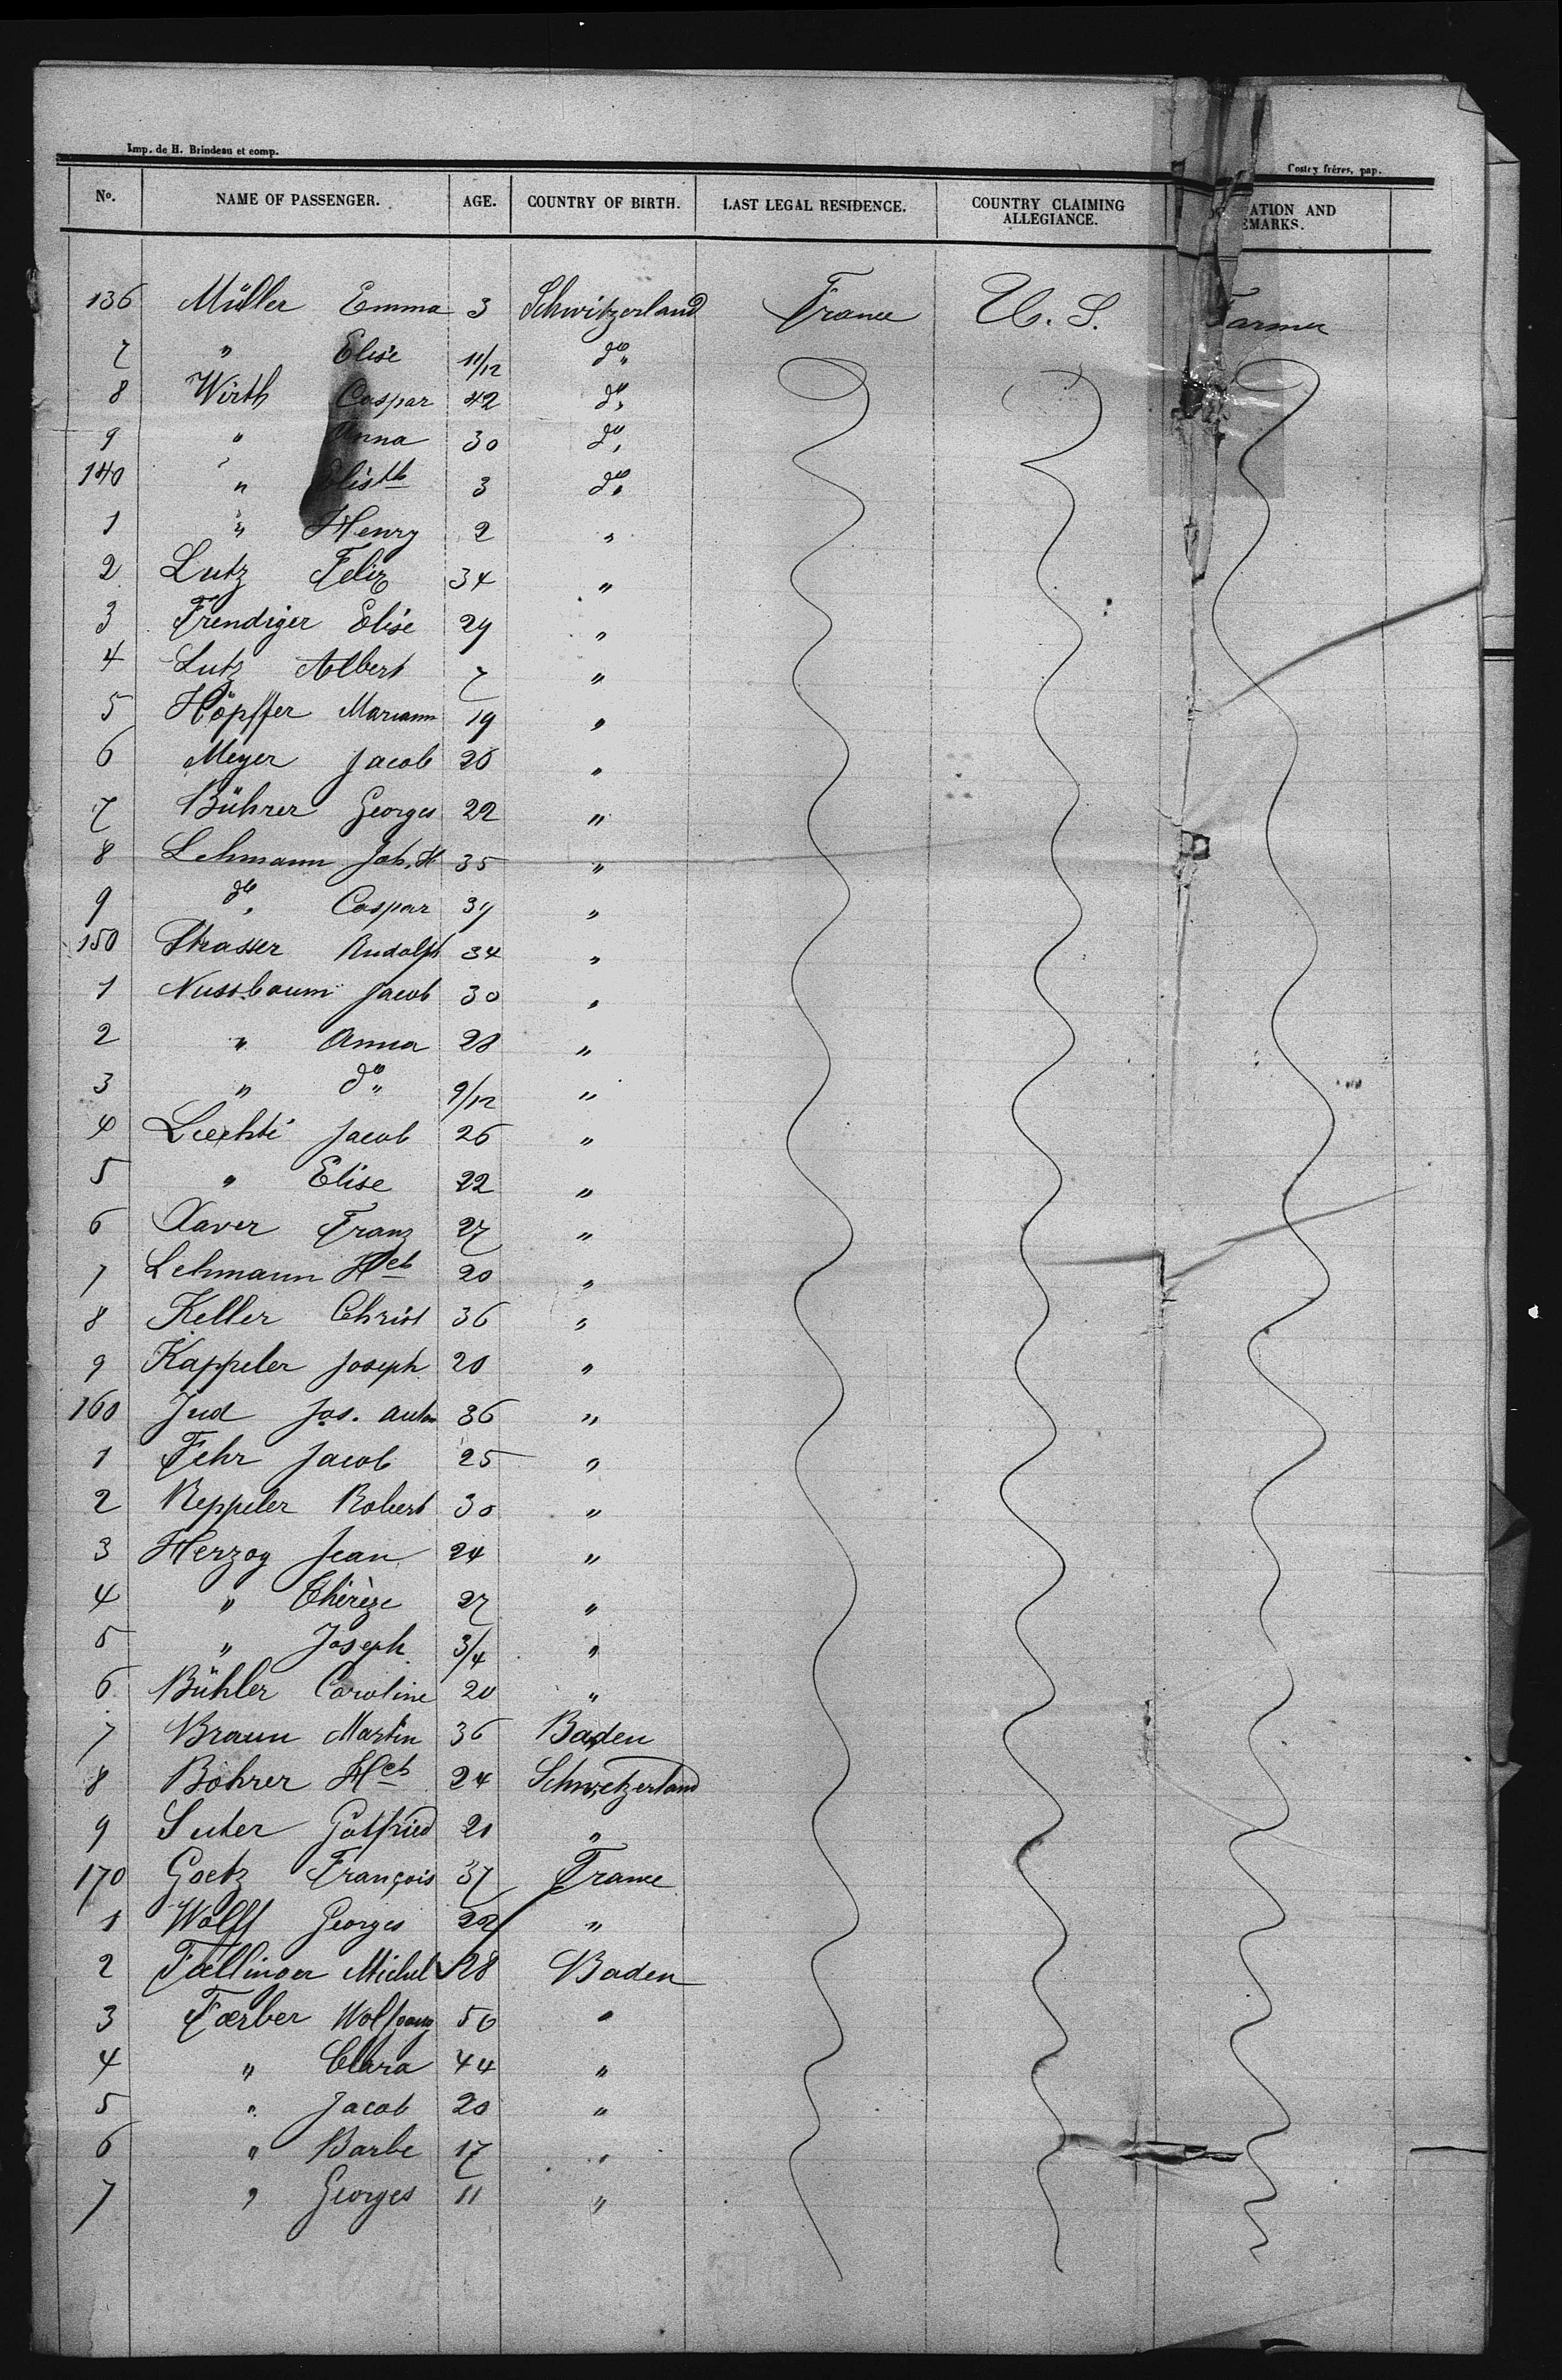 Imp. de H. Brindeau et comp.
Costey frères, pap.
No. NAME OF PASSENGER. AGE. COUNTRY OF BIRTH. LAST LEGAL RESIDENCE. COUNTRY CLAIMING ALLEGIANCE. ATION AND EMARKS.
136 Müller Emma 3 Schwitzerland France U. S. Farmer
7 " Elise 11/12 do "
8 Wirth Caspar 42 do "
9 " Anna 30 do "
140 " Elisth 3 do "
1 " Henry 2 "
2 Lutz Felix 34 "
3 Frendiger Elise 29 "
4 Lutz Albert 7 "
5 Höpffer Mariann 19 "
6 Meyer Jacob 20 "
7 Bührer Georges 22 "
8 Lehmann Joh. H 35 "
9 do " Caspar 39 "
150 Strasser Rudolph 34 "
1 Nussbaum Jacob 30 "
2 " Anna 28 "
3 " do " 9/12 "
4 Liechti Jacob 26 "
5 " Elise 22 "
6 Xaver Franz 27 "
7 Lehmann Hch 20 "
8 Keller Christ 36 "
9 Kappeler Joseph 20 "
160 Jud Jos. Anton 36 "
1 Fehr Jacob 25 "
2 Reppeler Robert 30 "
3 Herzog Jean 24 "
4 " Thérèze 27 "
5 " Joseph 3/4 "
6 Bühler Caroline 20 "
7 Braun Martin 36 Baden
8 Bohrer Hch 24 Schwetzerland
9 Suter Gotfried 21 "
170 Goetz François 37 France
1 Wolff Georges 22 "
2 Fællinger Michel 28 Baden
3 Færber Wolfgang 50 "
4 " Clara 44 "
5 " Jacob 20 "
6 " Barbe 17 "
7 " Georges 11 "